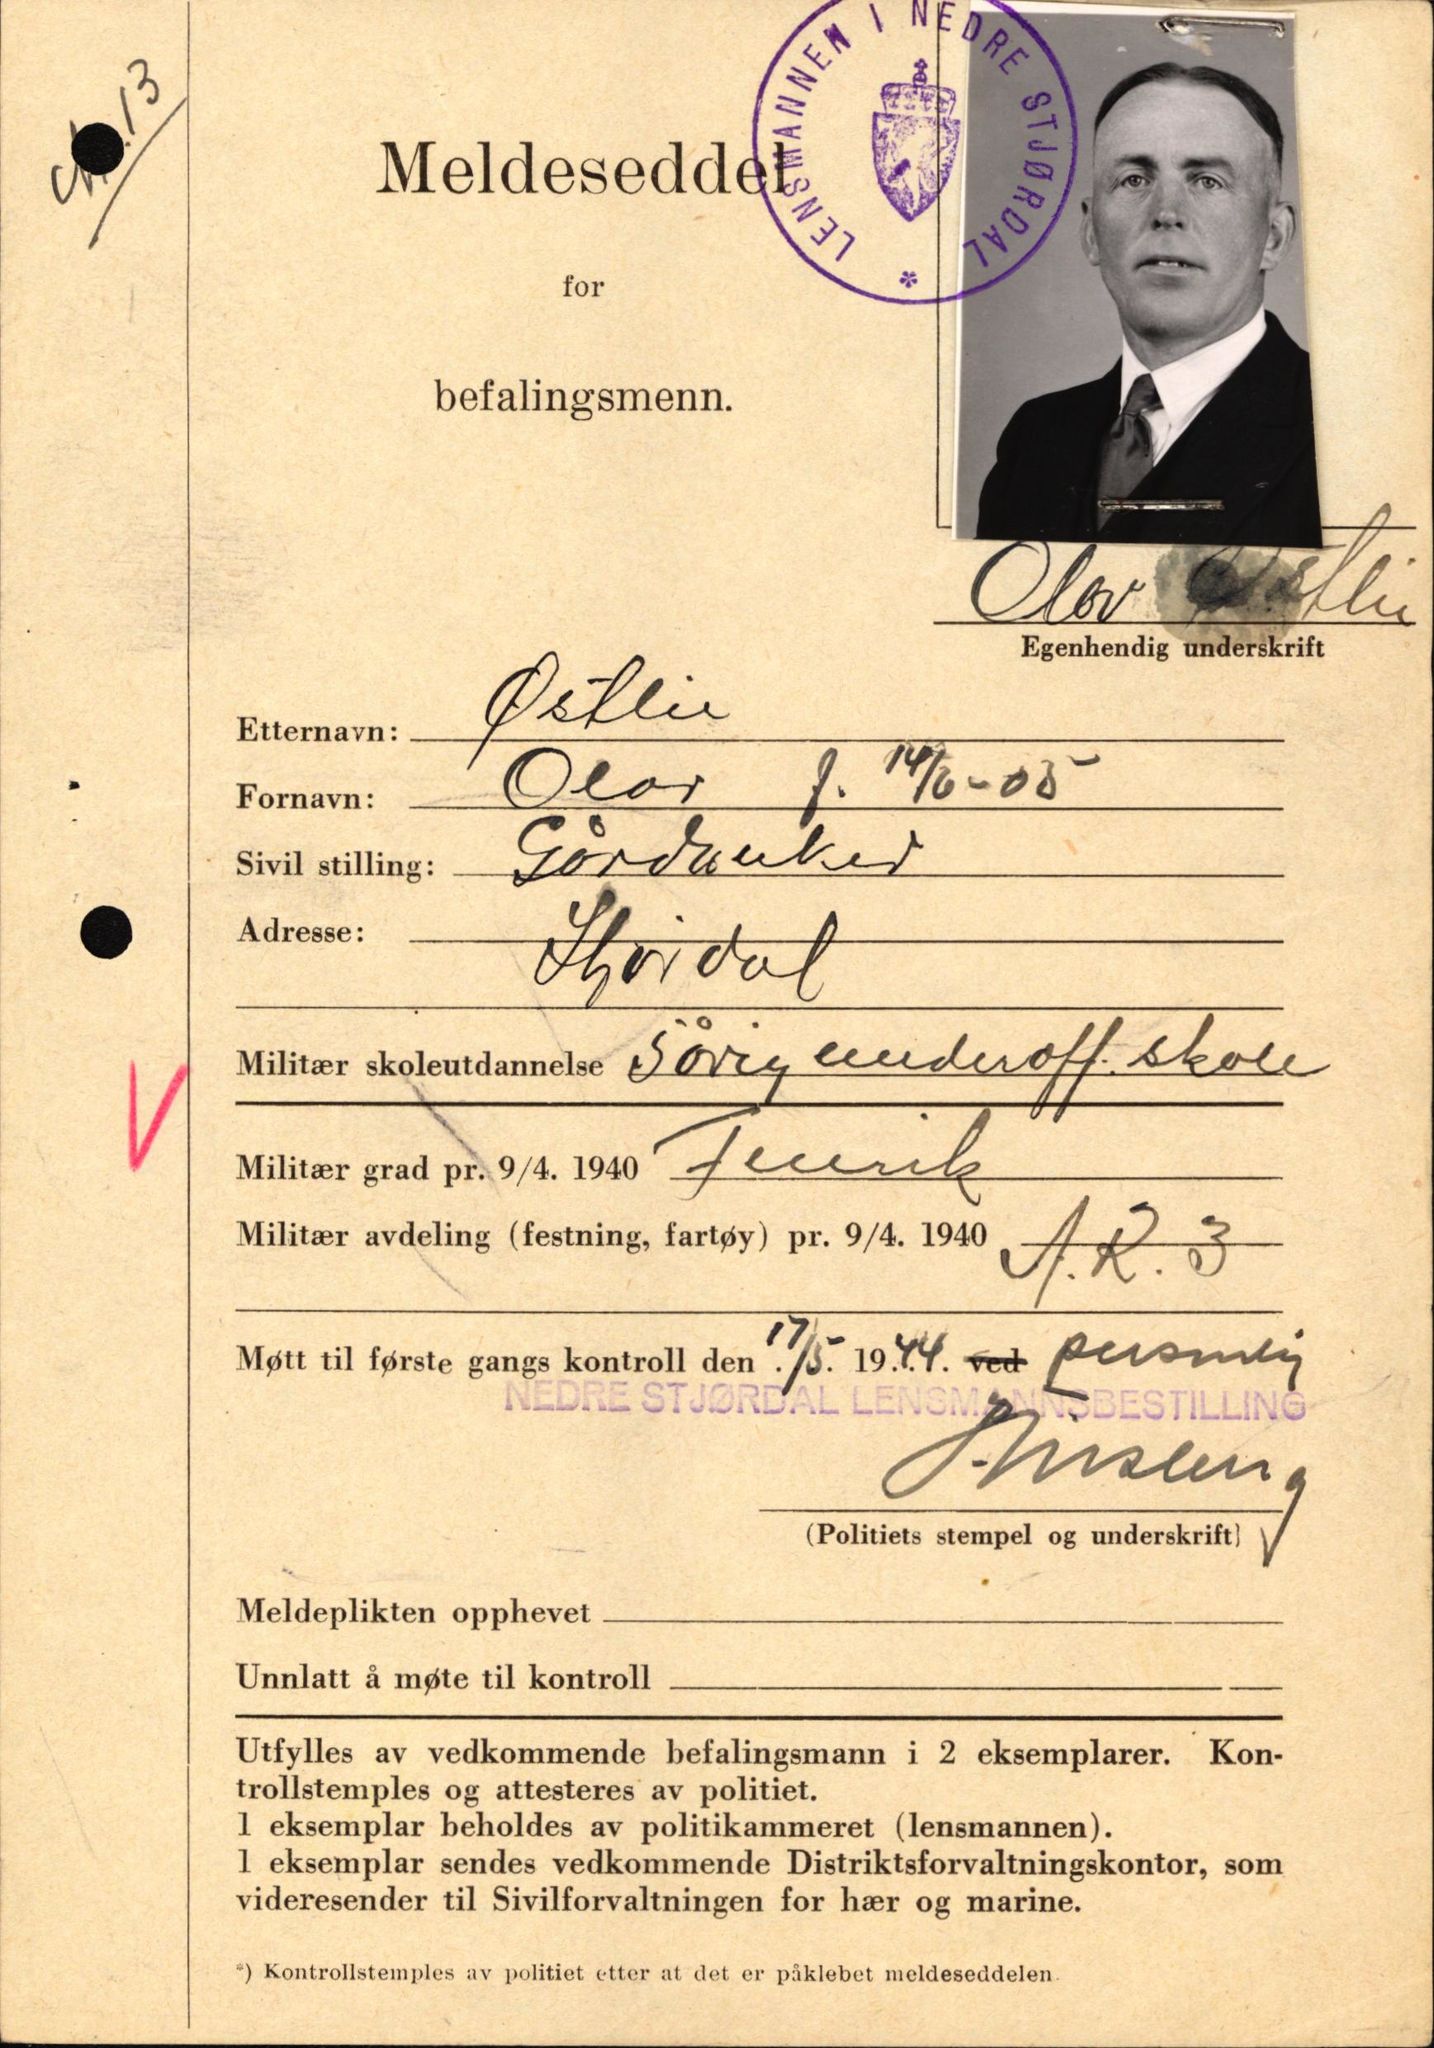 13
LENSMANNEN I NEDRE STJØRDAL *
Meldeseddel
for
befalingsmenn.
Olov Østlie
Egenhendig underskrift
Etternavn: Østlie
Fornavn: Olov f. 14/6-05
Sivil stilling: Gårdbruker
Adresse: Stjørdal
Militær skoleutdannelse 3årig underoff. skole
Militær grad pr. 9/4. 1940 Fenrik
Militær avdeling (festning, fartøy) pr. 9/4. 1940 A.R. 3
Møtt til første gangs kontroll den 17/5. 1944. ved personlig
NEDRE STJØRDAL LENSMANNSBESTILLING
(Politiets stempel og underskrift)
Meldeplikten opphevet
Unnlatt å møte til kontroll
Utfylles av vedkommende befalingsmann i 2 eksemplarer. Kon-
trollstemples og attesteres av politiet.
1 eksemplar beholdes av politikammeret (lensmannen).
1 eksemplar sendes vedkommende Distriktsforvaltningskontor, som
videresender til Sivilforvaltningen for hær og marine.
*) Kontrollstemples av politiet etter at det er påklebet meldeseddelen.